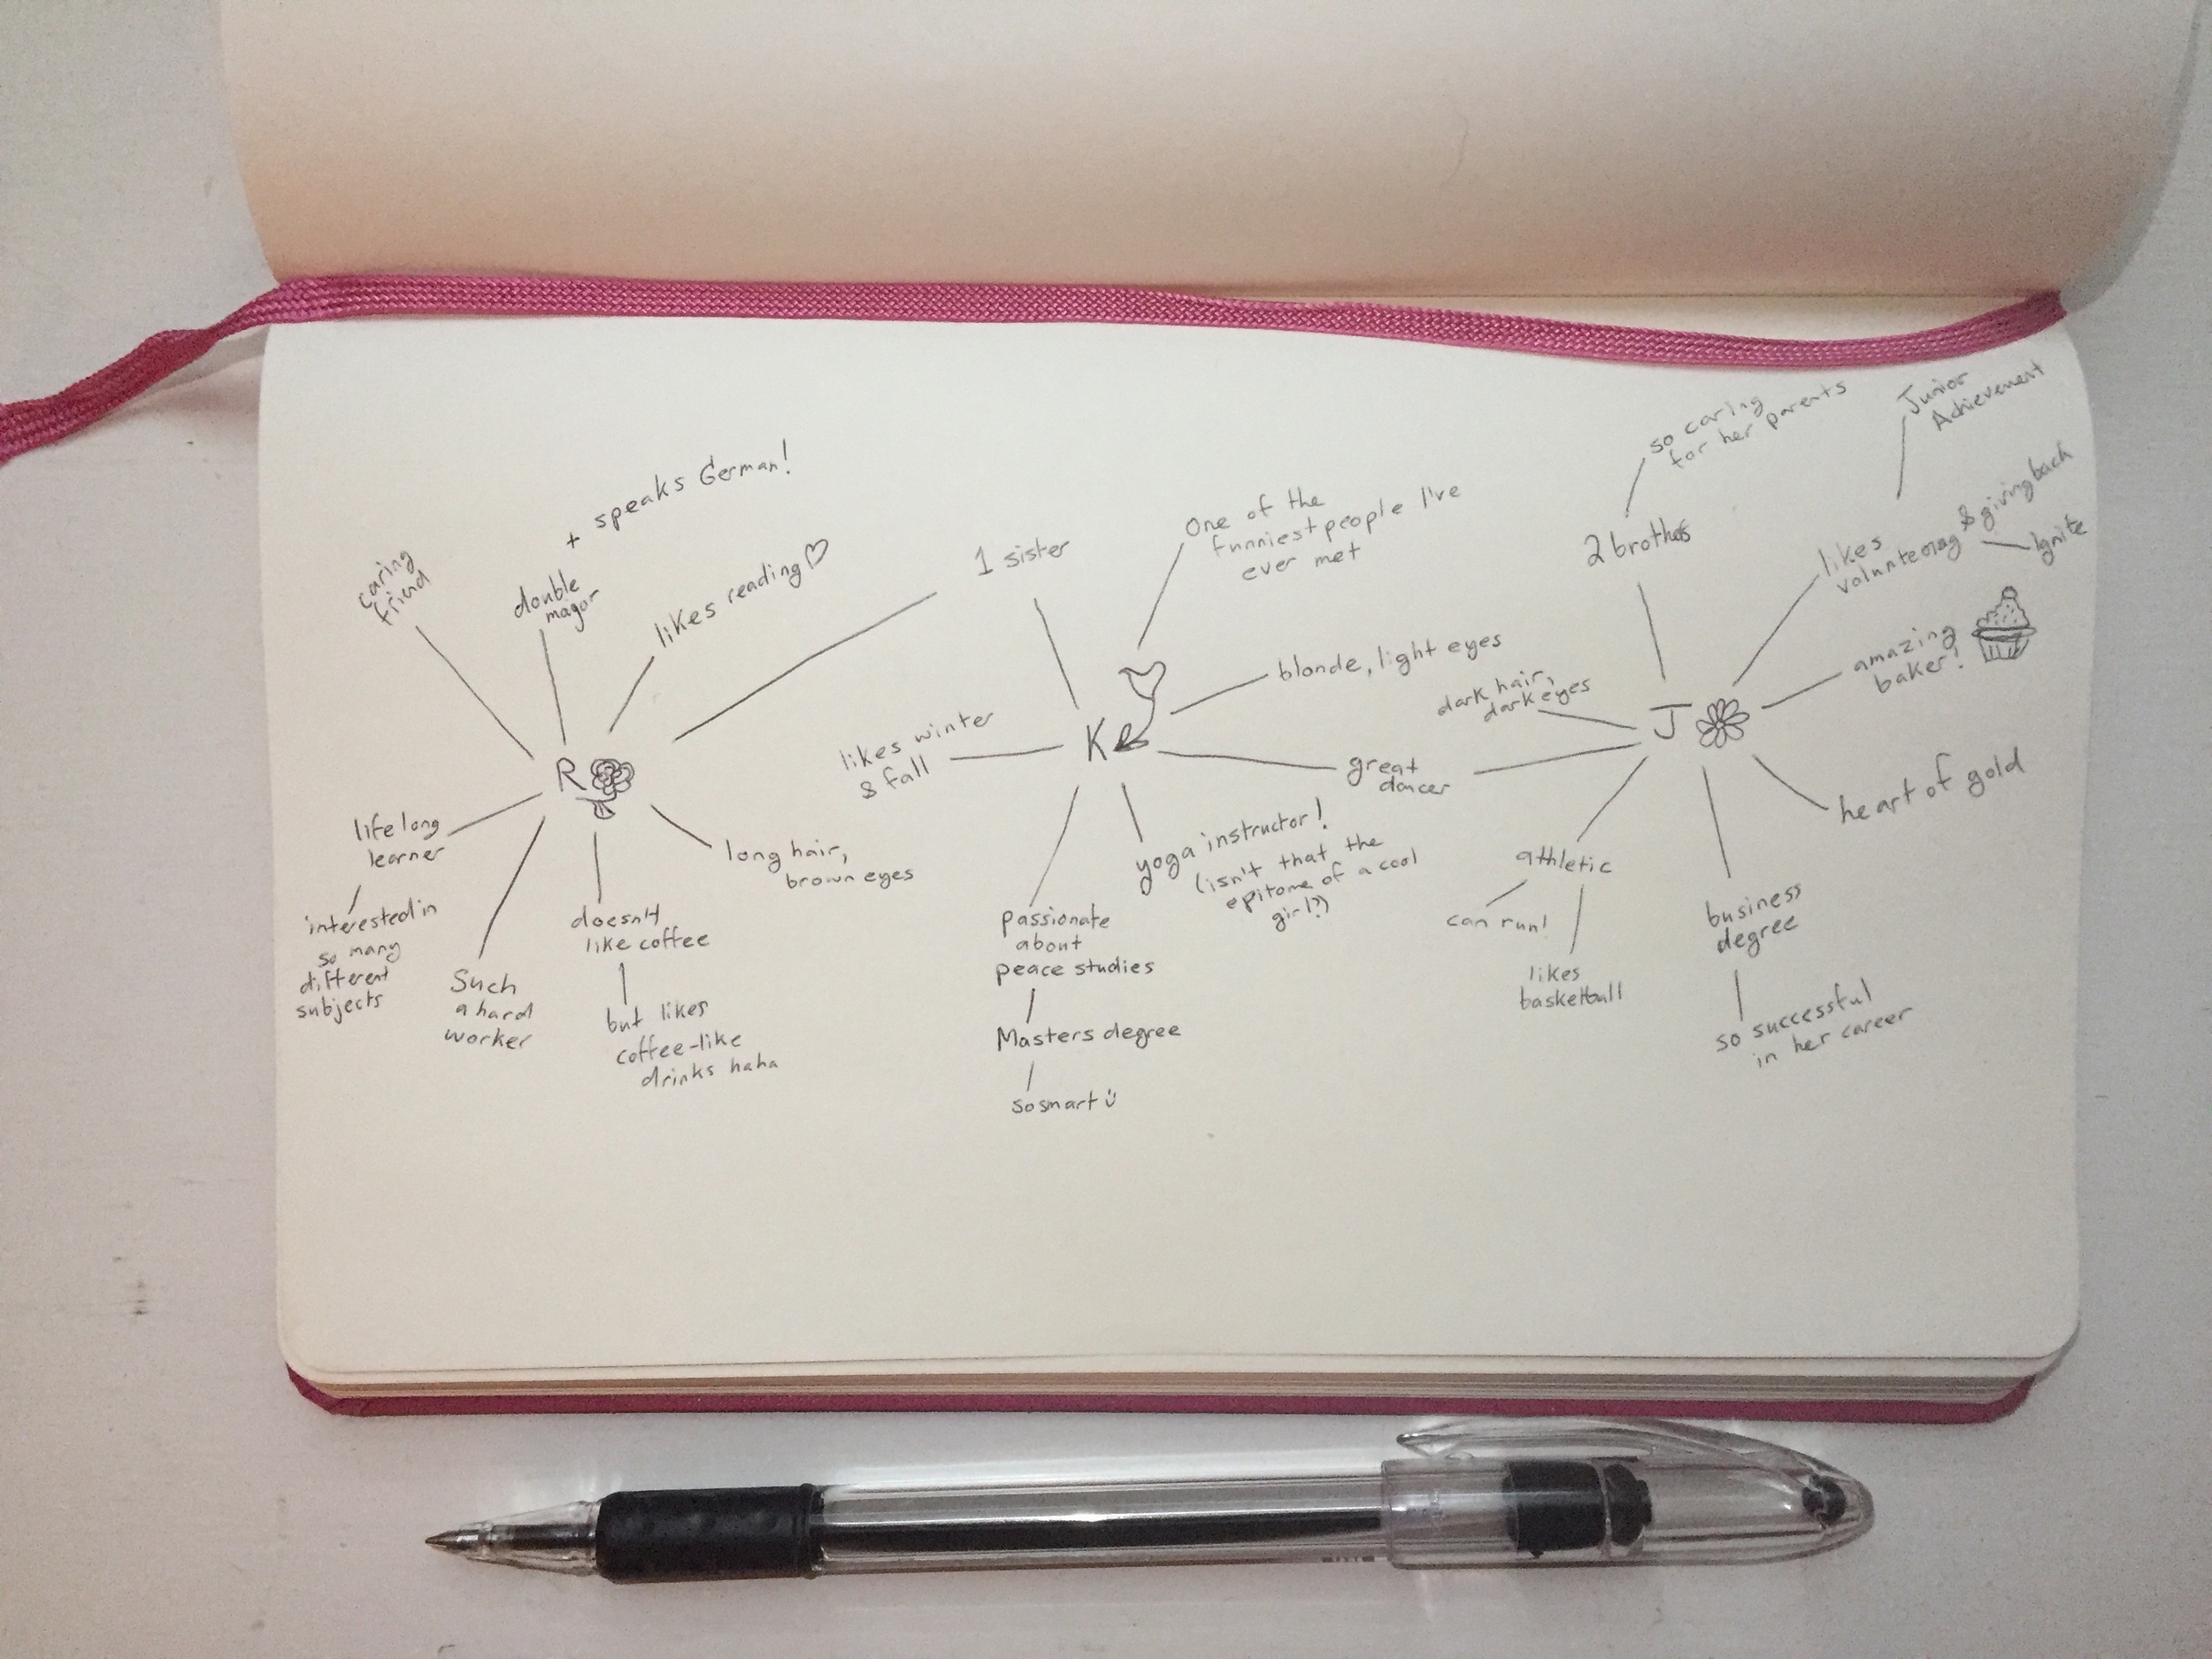 caring
friend
+ speaks German!
double
major
likes reading
1 sister
R
life long
learner
interested in
so many
different
subjects
Such
a hard
worker
doesn't
like coffee
but likes
coffee-like
drinks haha
long hair,
brown eyes
One of the
funniest people I've
ever met
K
blonde, light eyes
likes winter
& fall
great
dancer
yoga instructor!
(isn't that the
epitome of a cool
girl?)
passionate
about
peace studies
Masters degree
so smart
so caring
for her parents
2 brothers
Junior
Achievement
likes
volunteering & giving back
Ignite
amazing
baker!
dark hair,
dark eyes
J
heart of gold
athletic
can run!
likes
basketball
business
degree
so successful
in her career